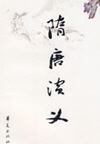 隋唐演义
华夏出版社